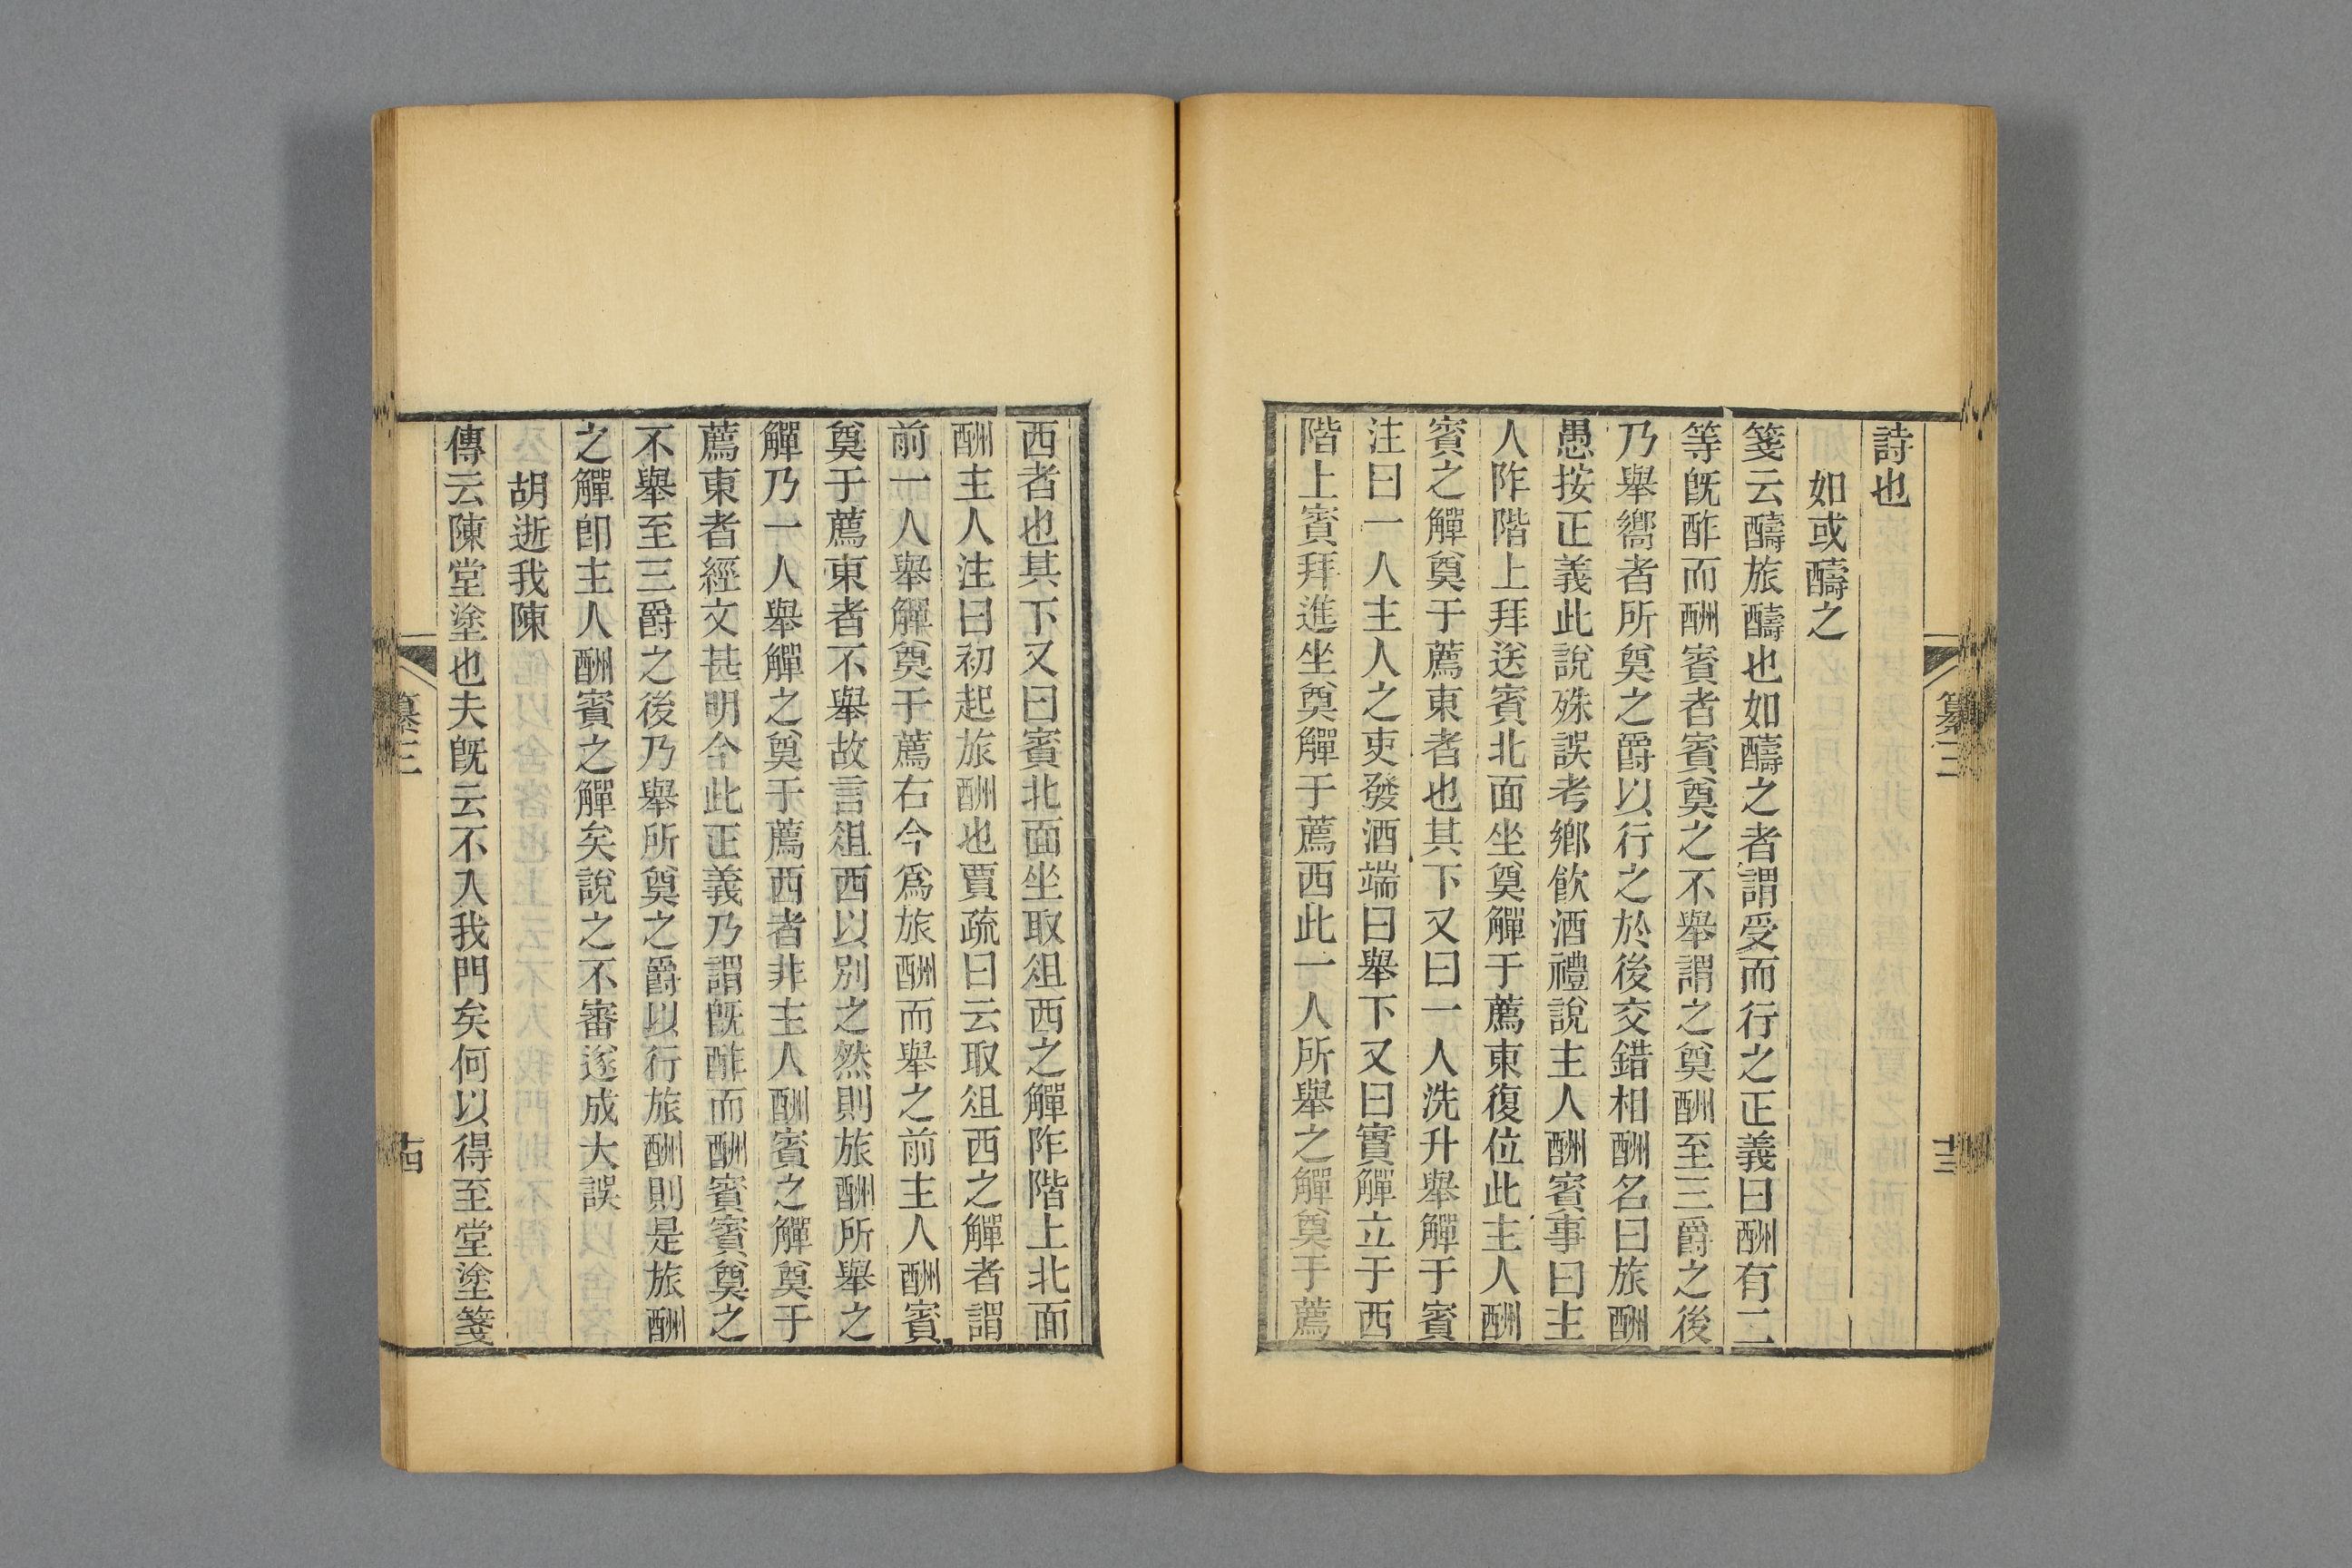 詩也
如或醻之
箋云醻旅醻也如醻之者謂受而行之正義曰酬有二
等旣酢而酬賓者賓奠之不舉謂之奠酬至三爵之後
乃舉嚮者所奠之爵以行之於後交錯相酬名曰旅酬
愚按正義此說殊誤考鄉飲酒禮說主人酬賓事曰主
人阼階上拜送賓北面坐奠觶于薦東復位此主人酬
賓之觶奠于薦東者也其下又曰一人洗升舉觶于賓
注曰一人主人之吏發酒端曰舉下又曰實觶立于西
階上賓拜進坐奠觶于薦西此一人所舉之觶奠于薦
纂三
十三
西者也其下又曰賓北面坐取俎西之觶阼階上北面
酬主人注曰初起旅酬也賈疏曰云取俎西之觶者謂
前一人舉觶奠于薦右今爲旅酬而舉之前主人酬賓
奠于薦東者不舉故言俎西以別之然則旅酬所舉之
觶乃一人舉觶之奠于薦西者非主人酬賓之觶奠于
薦東者經文甚明今此正義乃謂旣酢而酬賓賓奠之
不舉至三爵之後乃舉所奠之爵以行旅酬則是旅酬
之觶卽主人酬賓之觶矣說之不審遂成大誤
胡逝我陳
傳云陳堂塗也夫旣云不入我門矣何以得至堂塗箋
纂三
十四